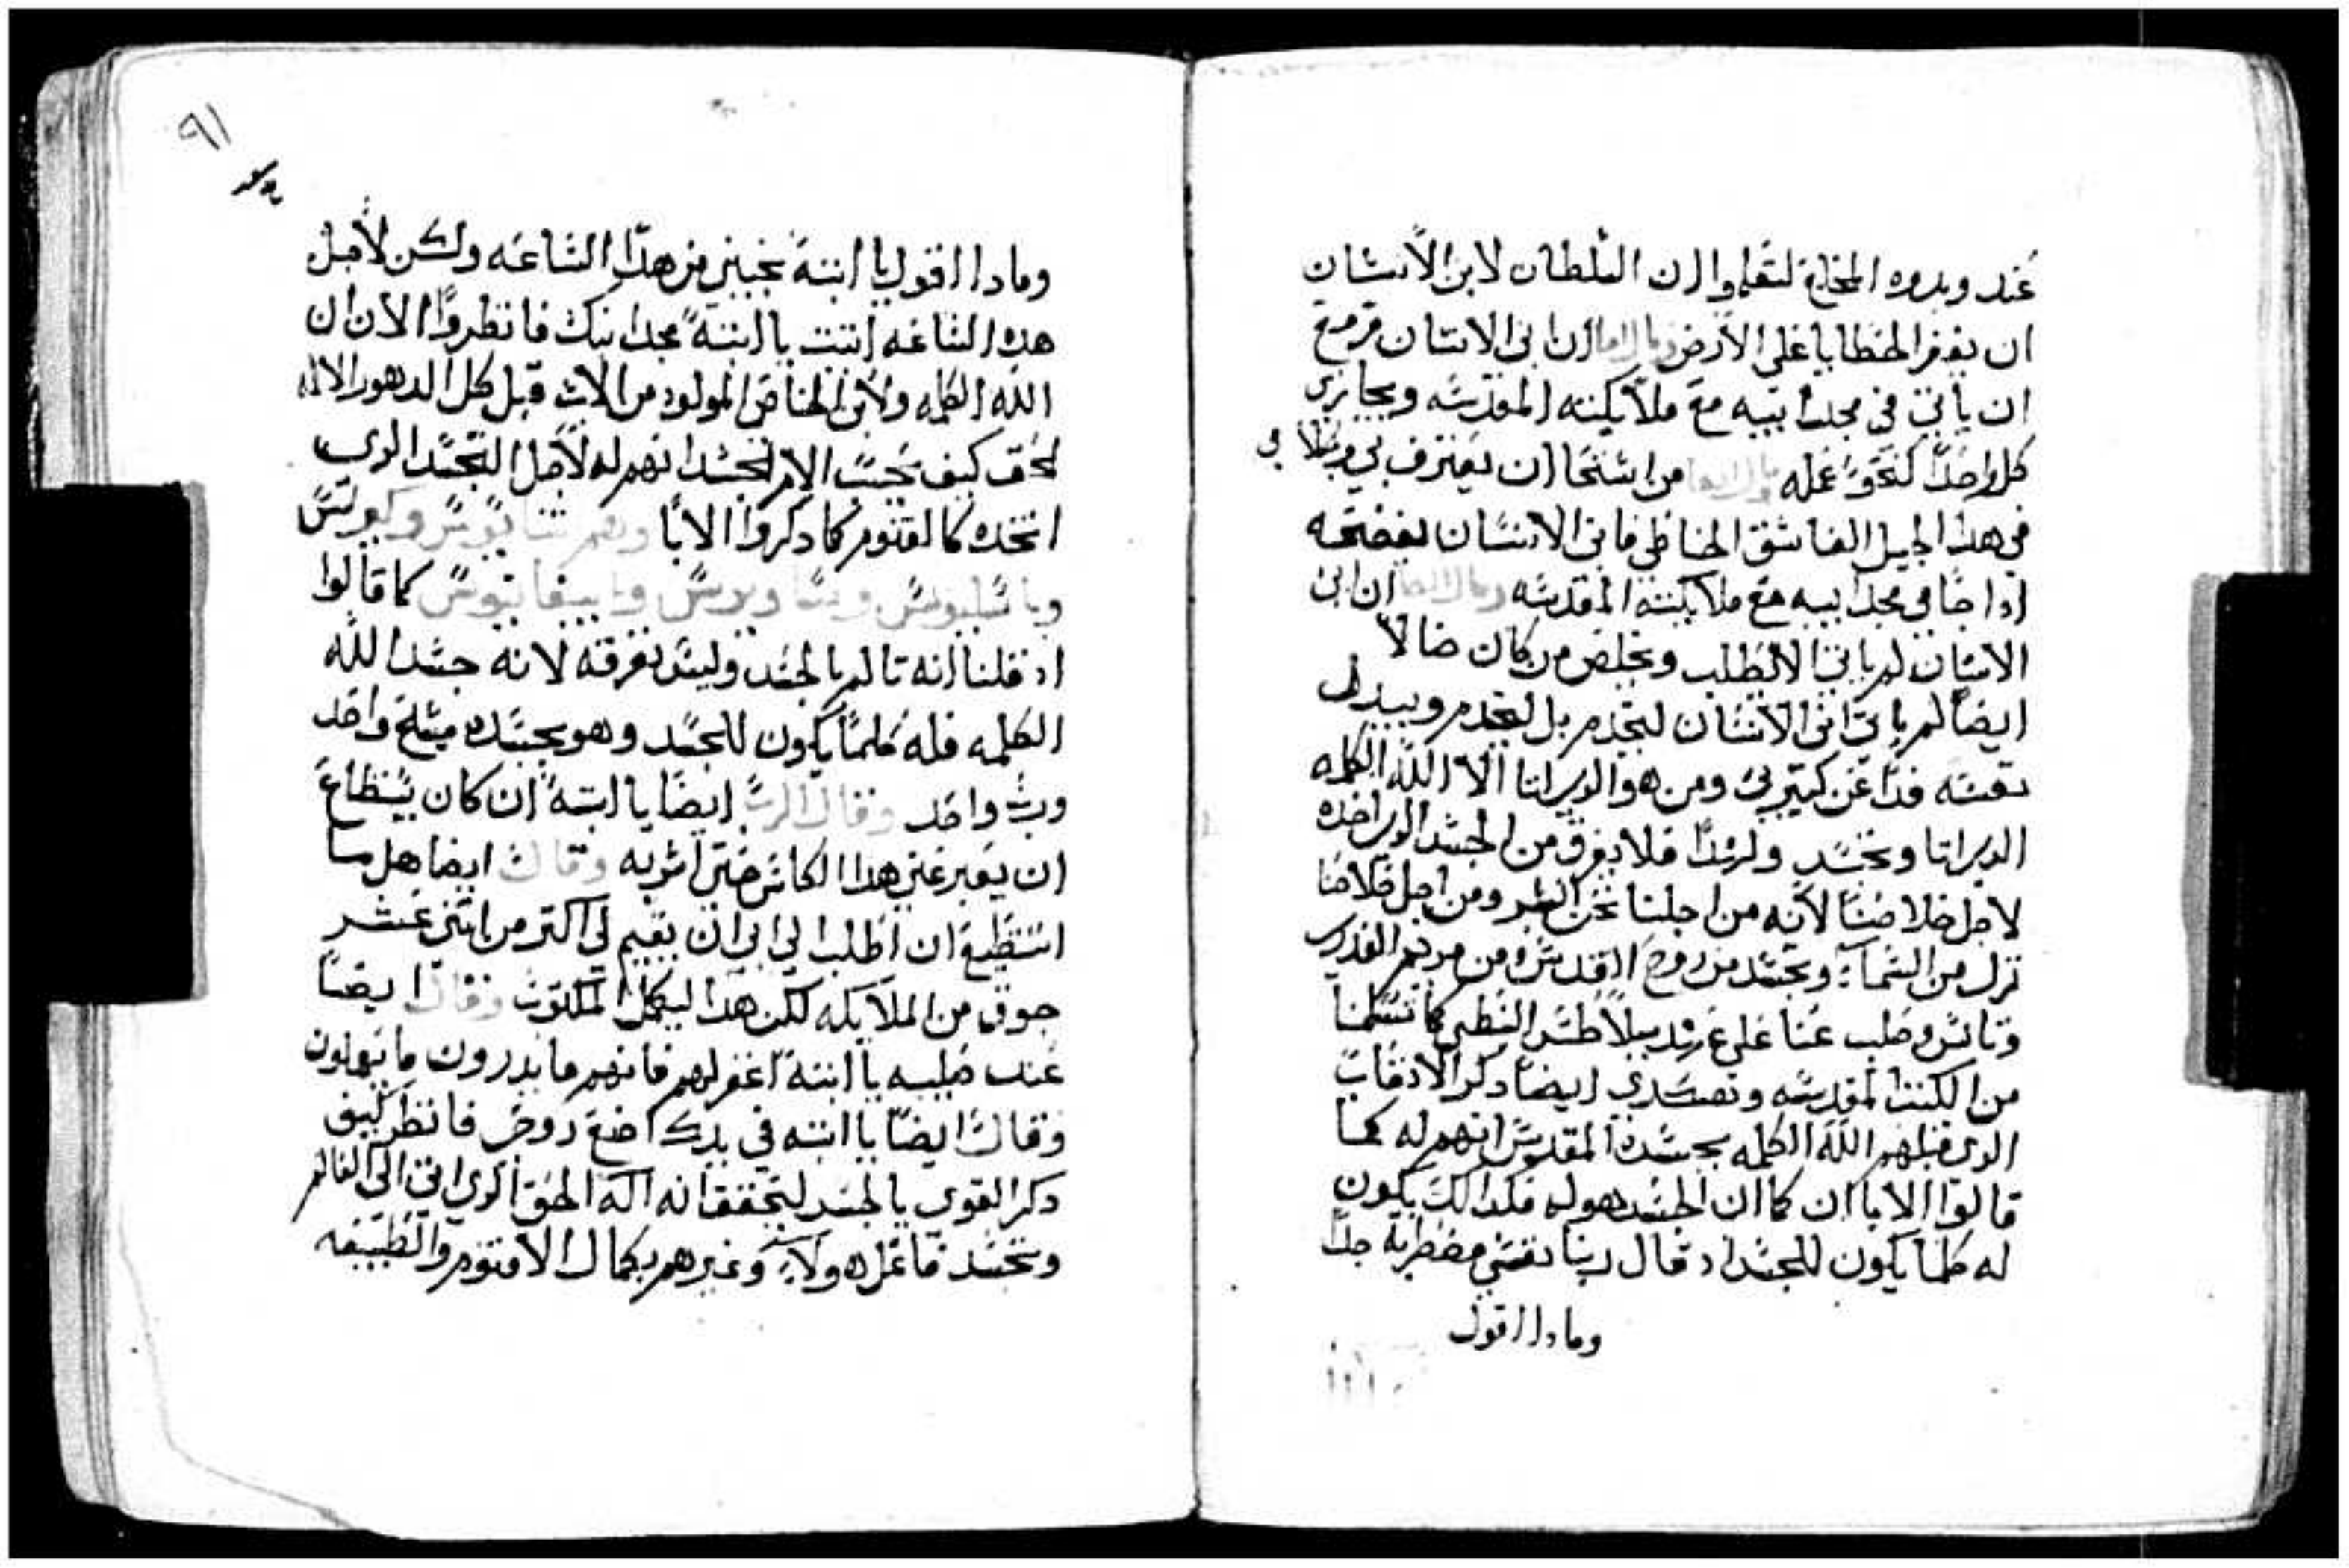 عند وبدوه المخلع لتعلموا ان السلطان لابن الانسان
ان يغفر الخطايا على الارض وقال ايضا ان ابن الانسان مزمع
ان ياتي في مجد ابيه مع ملايكته المقدسه ويجازي
كل واحد كنحو عمله وقال ايضا من استحا ان يعترف بي وبكلامي
في هذا الجيل الفاسق الخاطي فابن الانسان يفضحه
اذا جا في مجد ابيه مع ملايكته المقدسه وقال ايضا ان ابن
الانسان لم ياتي الا ليطلب ويخلص من كان ضالا
ايضا لم ياتي ابن الانسان ليخدم بل ليخدم ويبذل
نفسه فدا عن كثيرين ومن هو الذي اتا الا الله الكلمه
الذي اتا وتجسد ولهذا فلا يفرق من الجسد الذي اخذه
لاجل خلاصنا لانه من اجلنا نحن البشر ومن اجل خلاصنا
نزل من السماء وتجسد من روح القدس ومن مريم العذرى
وتانس وصلب عنا على عهد بيلاطس البنطي كما تسلمنا
من الكتب المقدسه وتصديق ايضا ذكر الاوقات
الذي قبلهم الله الكلمه بجسده المقدس انهم له كما
قالوا الابا ان كما ان الجسد هو له فكذالك يكون
له كلما يكون للجسد اذ قال ربنا نفسي مضطربه جدا
وماذا اقول
٩١
وماذا اقول يا ابتة نجيني من هذه الساعه ولكن لاجل
هذه الساعه اتيت يا ابتة مجد ابنك فانظروا الان ان
الله الكلمه والابن الخاص المولود من الاب قبل كل الدهور الاله
الحق كيف يحسب الام الجسد انهم له لاجل التجسد الذي
اتخذه كالقنوم كما ذكروا الابا وهم اثناسيوس وكيرلس
وباسيليوس و وابيفانيوس كما قالوا
اذ قلنا انه تالم بالجسد وليس نفرقه لانه جسد الله
الكلمه فله كلما يكون للجسد وهو بجسده مسيح واحد
ورب واحد وقال الرب ايضا يا ابته ان كان يستطاع
ان يعبر عني هذا الكاس حتى اشربه وقال ايضا هل ما
استطيع ان اطلب الي ابي ان يقيم لي اكتر من اتني عشر
جوق من الملايكه لكن هذا ليكمل المكتوب وقال ايضا
عند صلبه يا ابتة اغفر لهم فانهم ما يدرون ما يعملون
وقال ايضا يا ابته في يدك اضع روحي فانظر كيف
ذكر القوي بالجسد ليتحقق انه اله الحق الذي اتي الي العالم
وتجسد فاعل هولاء وغيرهم بكمال الاقنوم والطبيعه